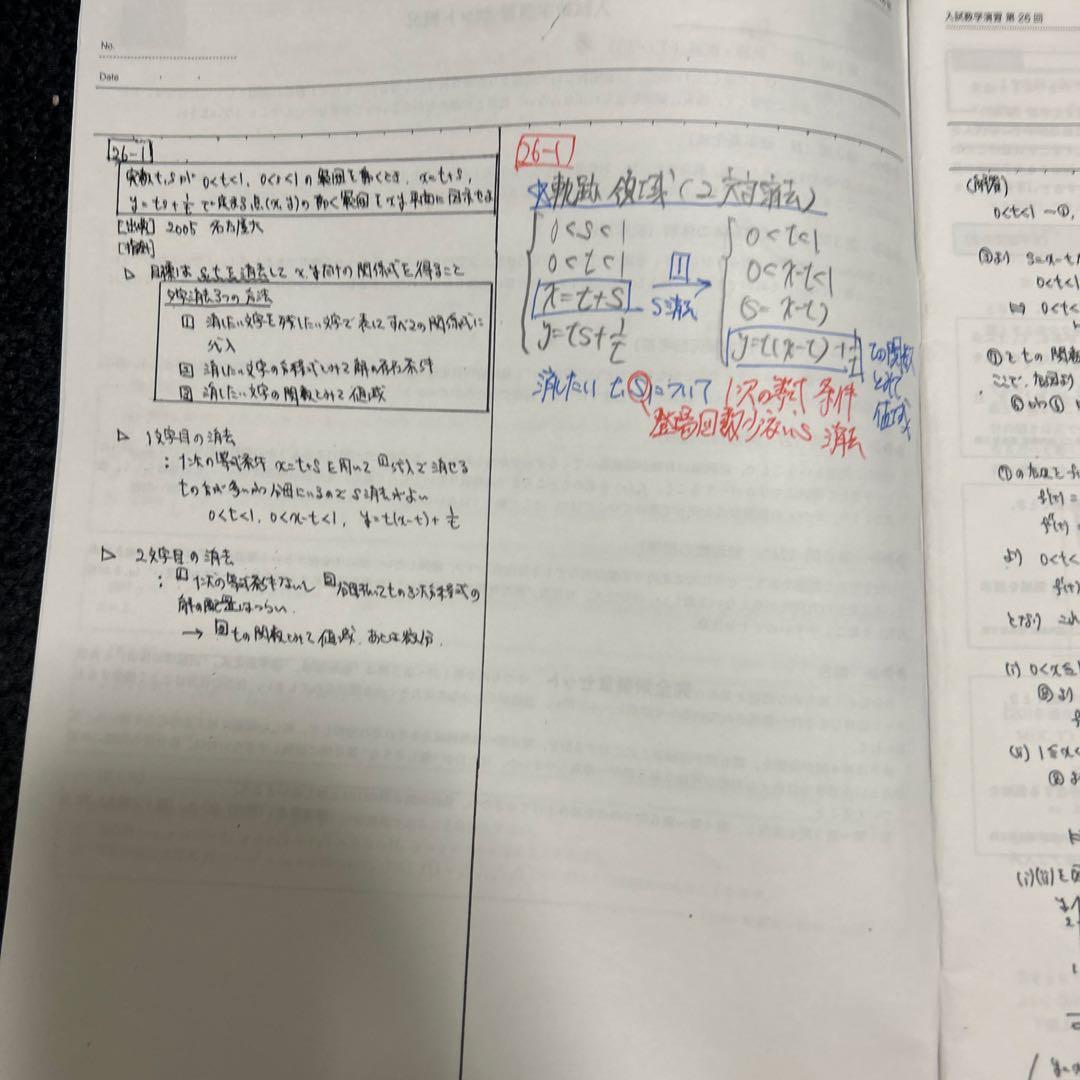 No.
Date
26-1
実数t,sが 0<t<1, 0<s<1 の範囲を動くとき, x=t+s,
y=ts+1/t で定まる点(x,y)の動く範囲をxy平面に図示せよ
[出典] 2005 名古屋大
[指針]
▷ 目標は s,tを消去して x,yだけの関係式を得ること
文字消去3つの方法
1 消したい文字を残したい文字で表してすべての関係式に
代入
2 消したい文字の方程式とみて解の存在条件
3 消したい文字の関数とみて値域
▷ 1文字目の消去
: 1次の等式条件 x=t+s を用いて 1代入で消せる
tの方が多いかつ分母にいるので s消去がよい
0<t<1, 0<x-t<1, y=t(x-t)+1/t
▷ 2文字目の消去
: 1 1次の等式条件ないし 2分母払ってtの3次方程式の
解の配置はつらい.
→ 3 tの関数とみて値域. あとは微分.
26-1
☆軌跡 領域 (2文字消去)
0<s<1
0<t<1
x=t+s
y=ts+1/t
1
s消去
0<t<1
0<x-t<1
(s=x-t)
y=t(x-t)+1/t
tの関数
とみて
値域
消したい t,sについて 1次の等式 条件
登場回数少ないs 消去
入試数学演習 第26回
(解答)
0<t<1 ―①,
②より s=x-t
0<t<1
⇔ 0<t<
①の右辺を
f(t)=
f'(t)=
より 0<t<
となり
(i) 0<x≦
(ii) 1≦x<
(i)(ii)を